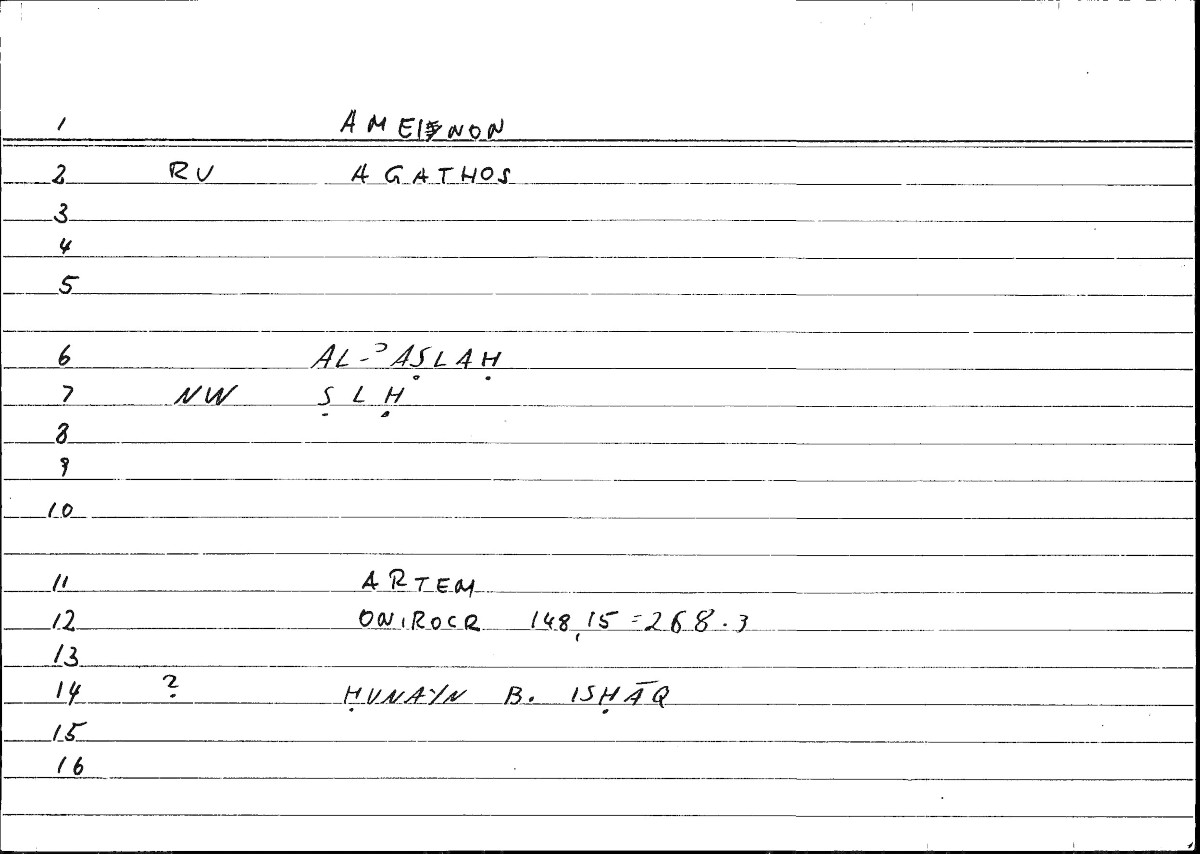 1 AMEINON
2 RV AGATHOS
3
4
5
6 AL-ʾAṢLAḤ
7 NW Ṣ L Ḥ
8
9
10
11 ARTEM
12 ONIROCR 148,15 = 268.3
13
14 ? ḤUNAYN B. ISḤĀQ
15
16